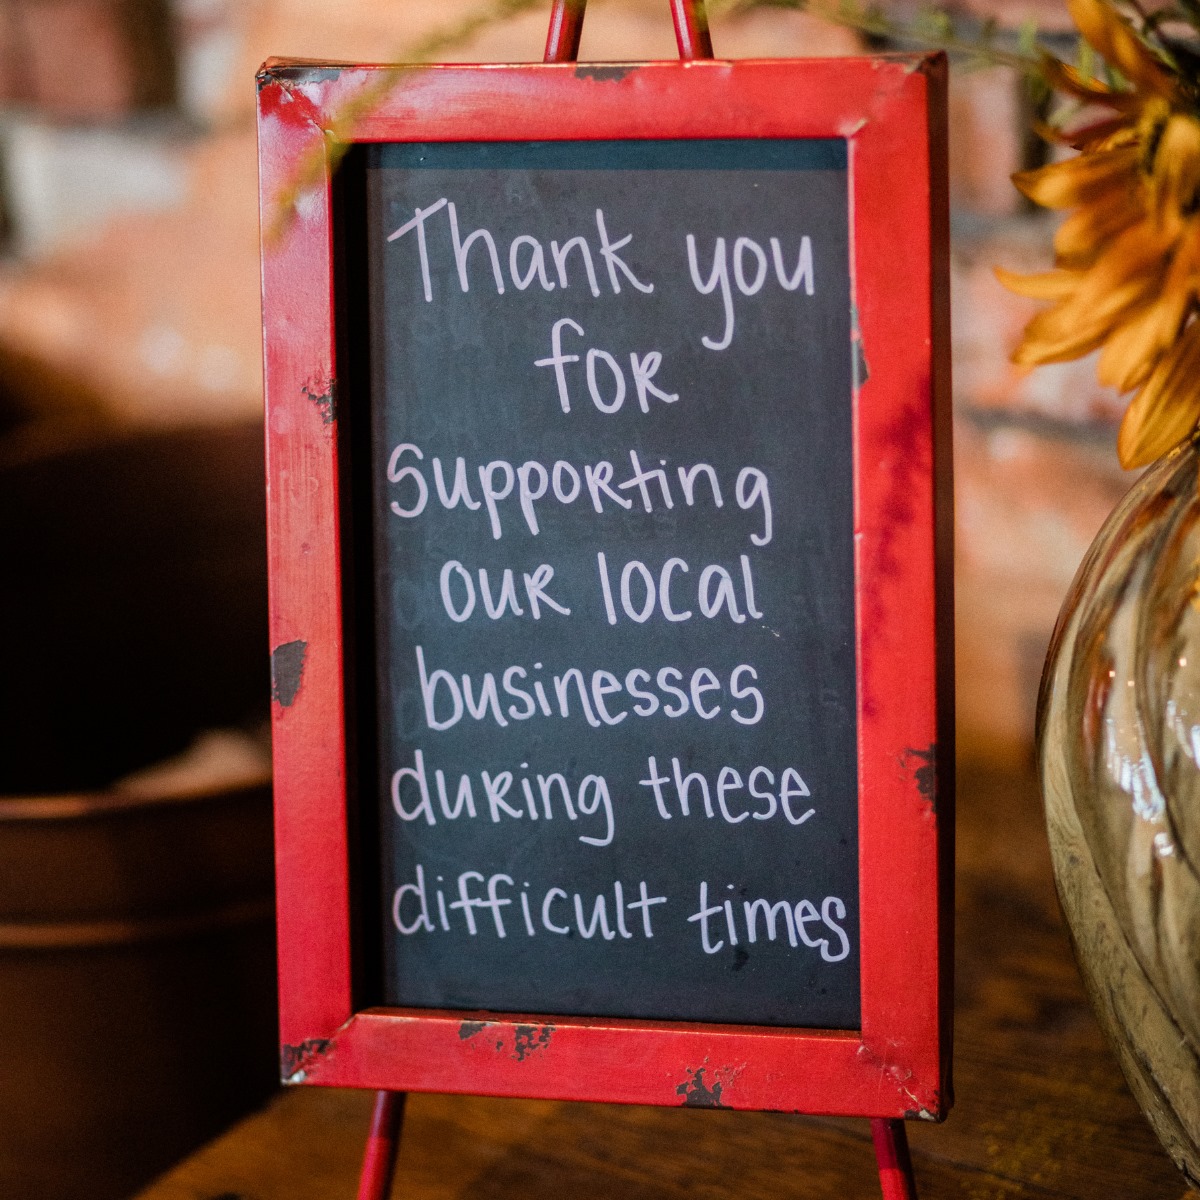 Thank you
for
Supporting
our local
businesses
during these
difficult times